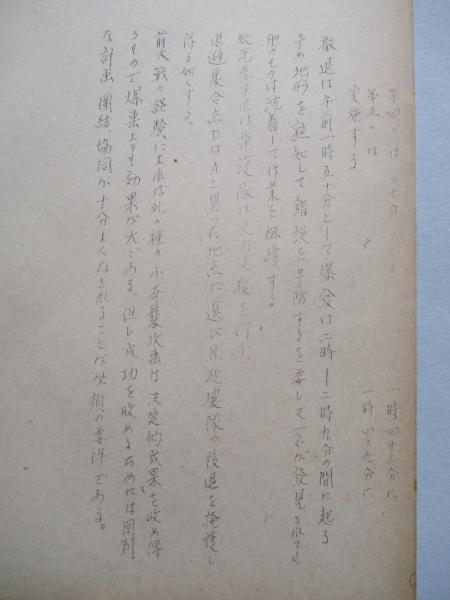 第四〃は二十分〃　一時四十五分に
第五〃は　〃　一時四十九分に
実施する
撤退は午前一時五十分として爆発は二時—二時九分の間に起る
予め地形を熟知して錯誤を予防するを要し 発見されても
他のものは沈着して作業を継続する
状況要すれば掩護隊は火力支援を行ふ
退避集合点DはAと異つた地点に選び且破壊隊の後退を掩護し
得る如くする。
前大戦の経験によれば此の種の小奇襲攻撃は決定的成果を収め得
るもので爆撃よりも効果が大である。但し成功を収めるためには周到
な計画、団結、協同が十分よくなされることが必須の要件である。